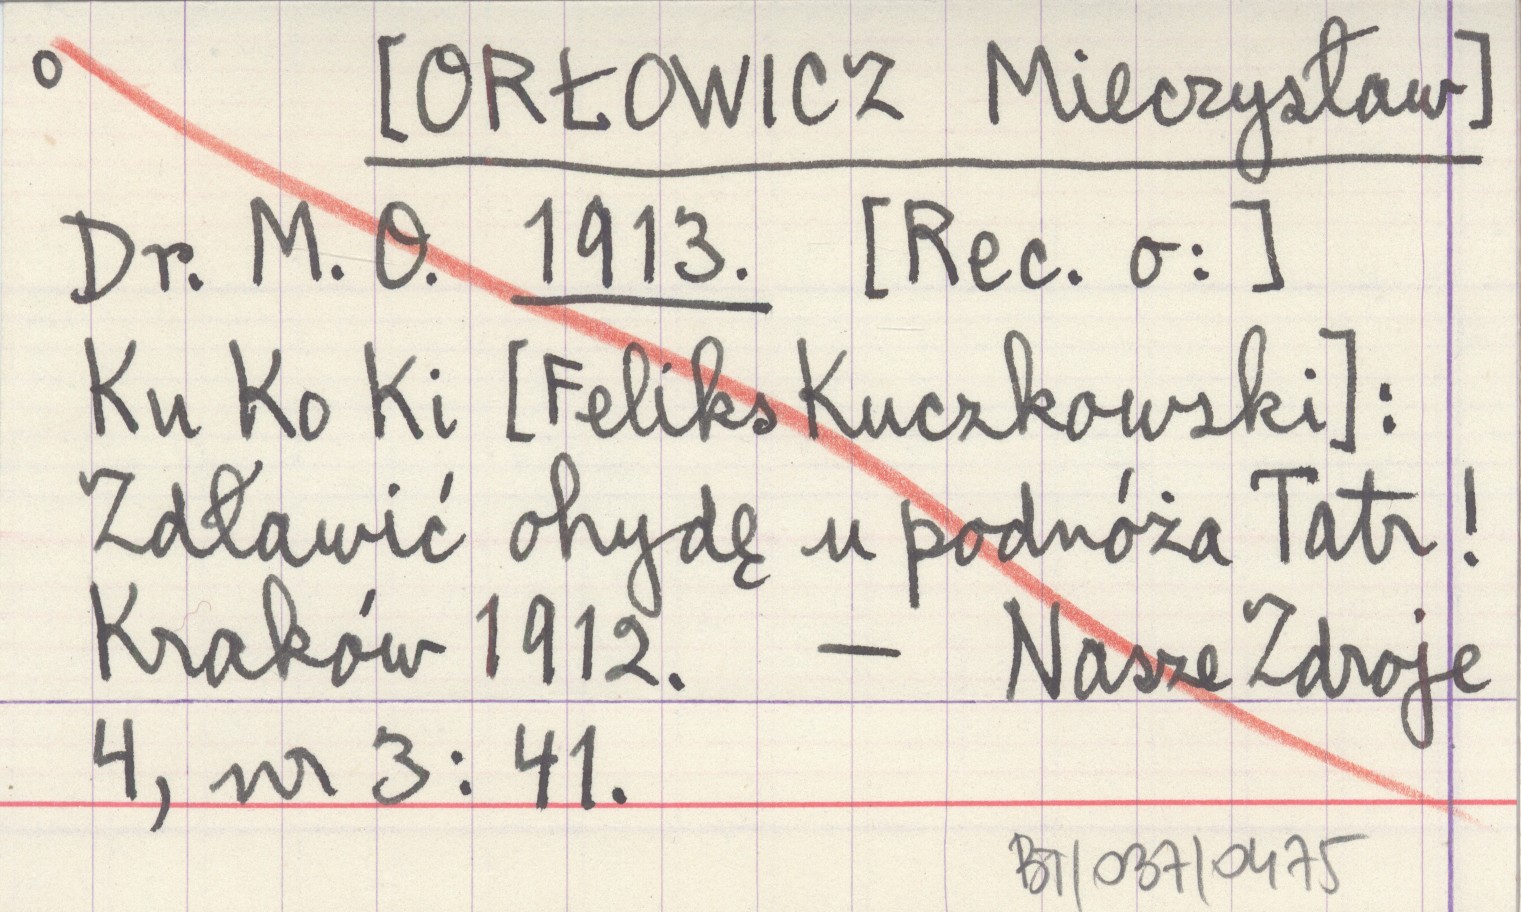 o [ORŁOWICZ Mieczysław]
Dr. M. O. 1913. [Rec. o: ]
Ku Ko Ki [Feliks Kuczkowski]:
Zdławić ohydę u podnóża Tatr!
Kraków 1912. — Nasze Zdroje
4, nr 3: 41.
BT/037/0475